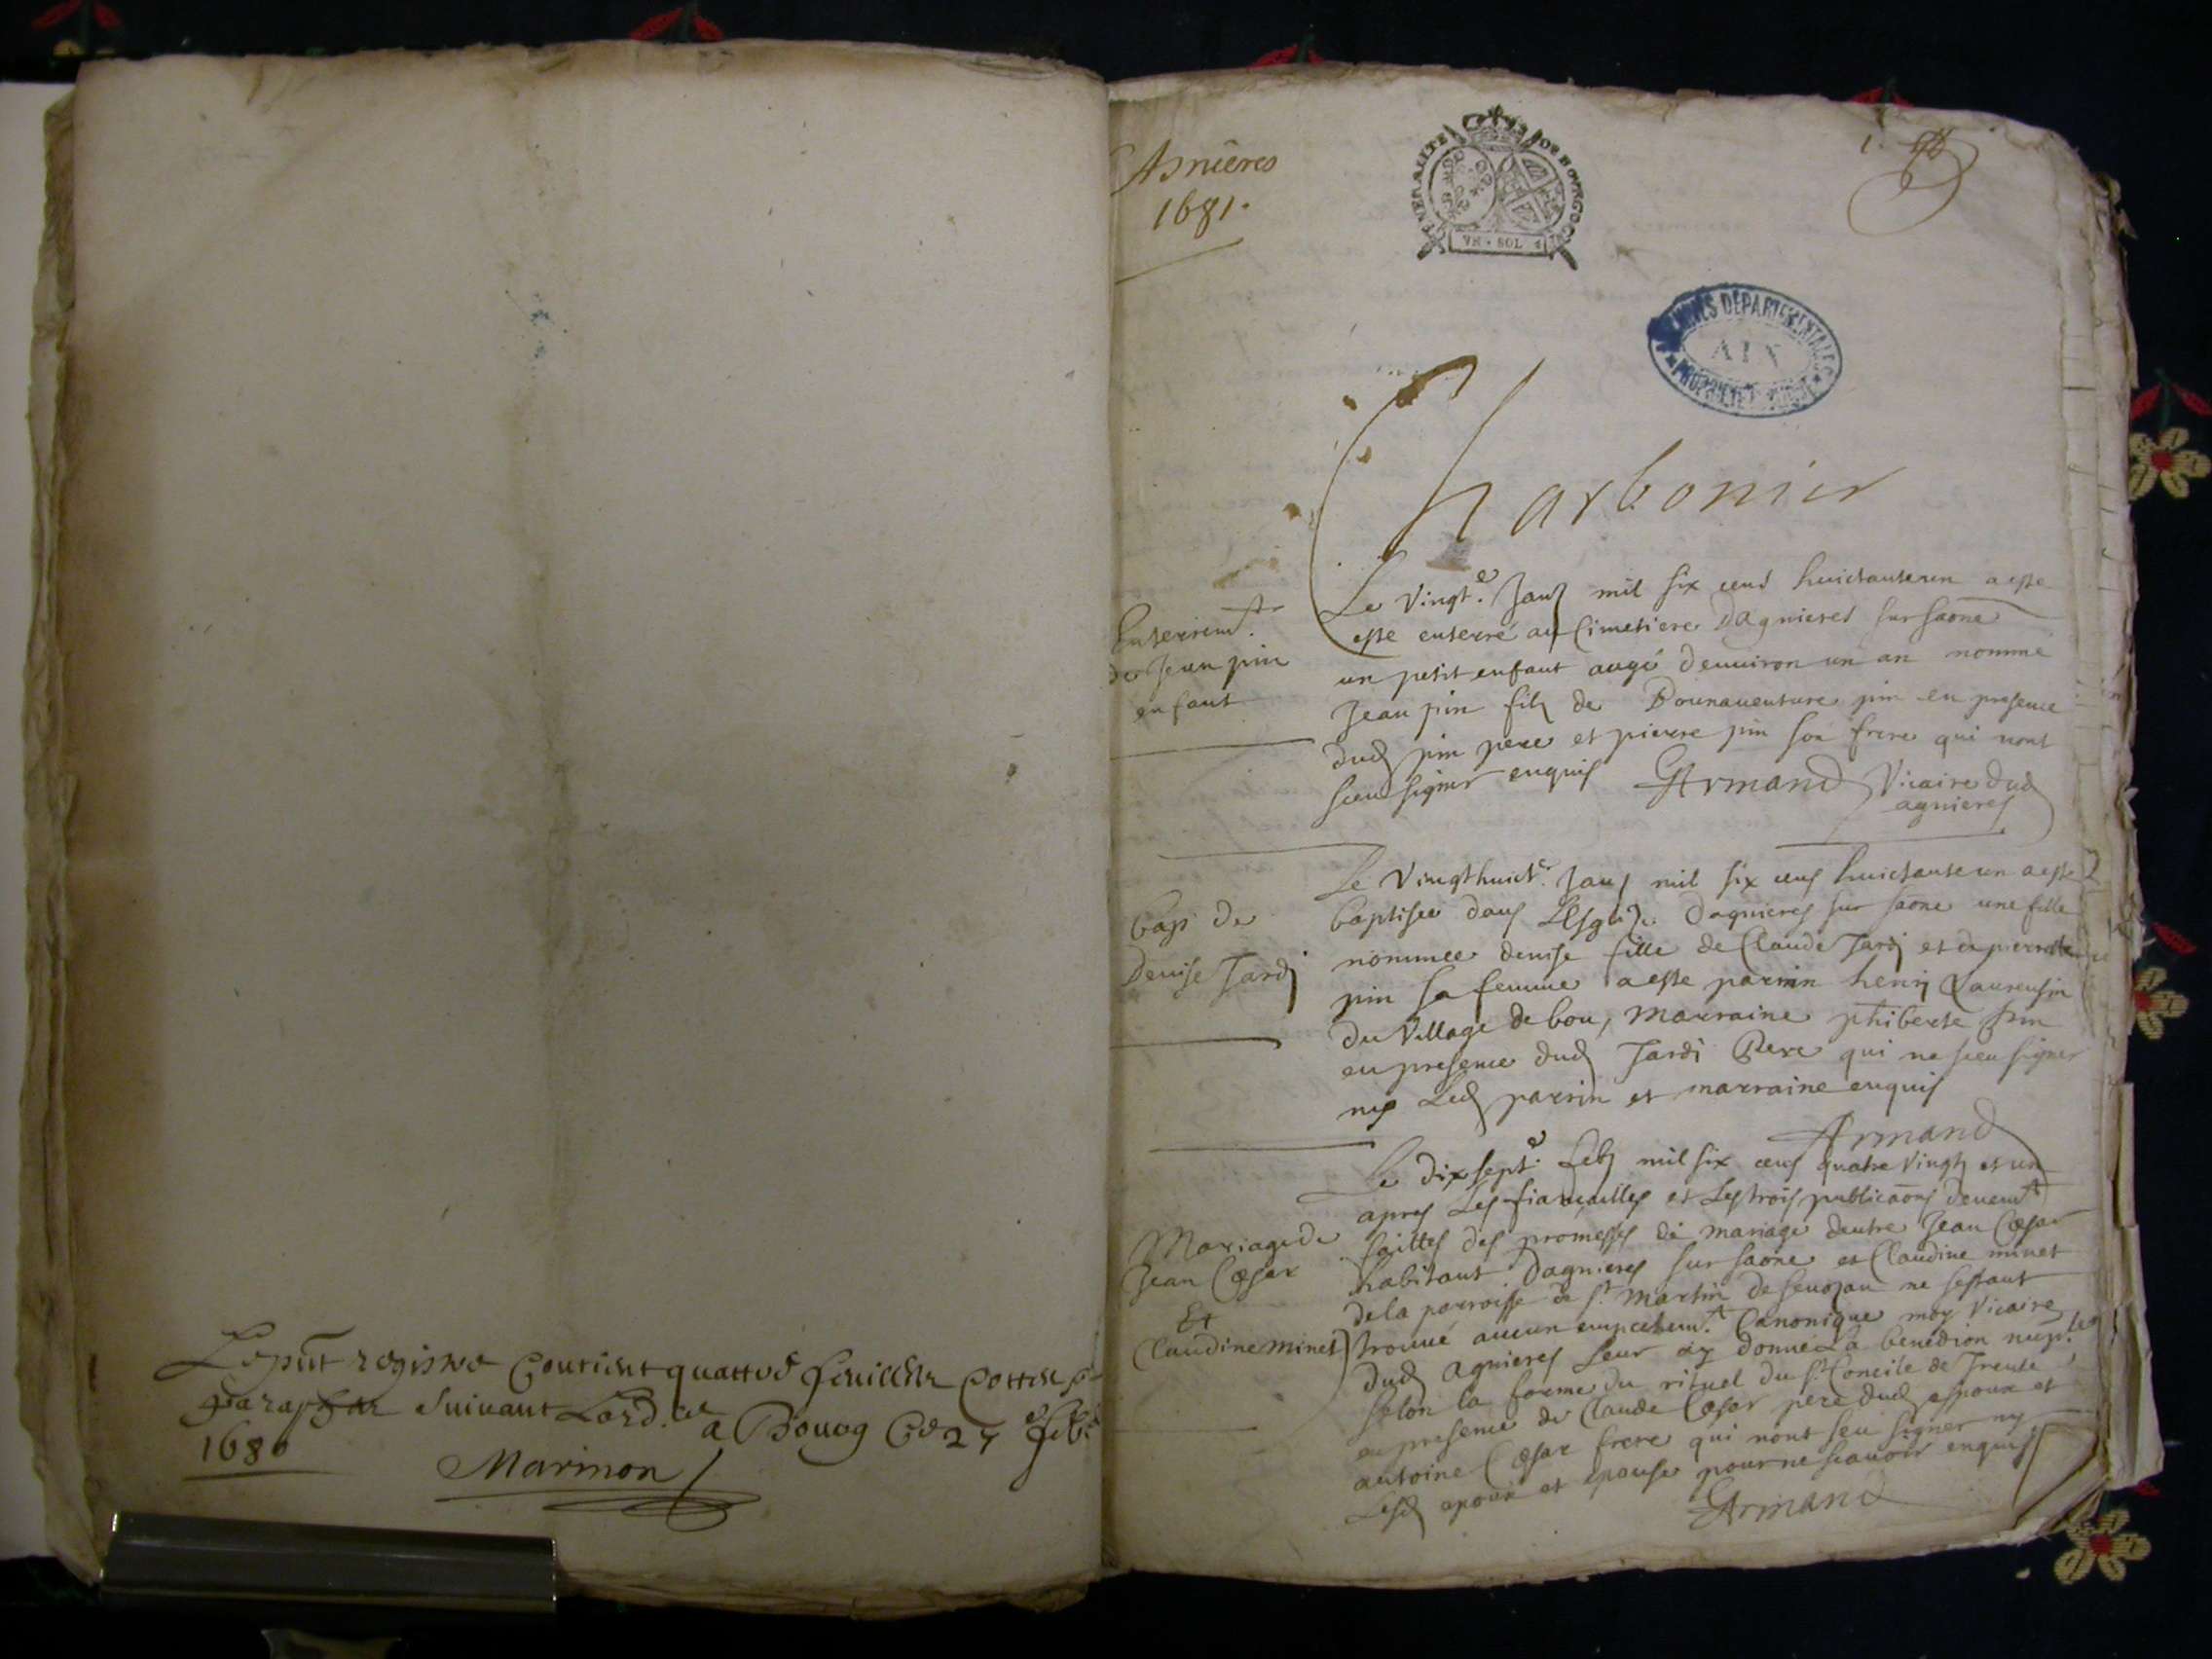 Le pnt registre Contient quattre feuillets Cottes et
paraphes suivant Lord.ce a Bourg Ce 27 feb.
1680
Marinon
Asnieres
1681.
GENERALITE DE BOURGOG
VN SOL
1.
ARCHIVES DEPARTEMENTALES
AIN
PROPRIETE
Charbonier
Enterremt
de Jean pin
enfant
Le vingte. Janr mil six cens huictanteun a este
este enterré au Cimetiere Dagnieres sur saone
un petit enfant aagé denuiron un an nommé
Jean pin filz de Bounauenture pin en presence
dud pin pere et pierre pin son frere qui nont
sceu signer enquis Armand Vicaire dud
agnieres
bap de
Denise Jardi
Le Vingthuicte. Janr mil six cens huictanteun a este
baptisee dans LEsglise Dagnieres sur saone une fille
nommee denise fille de Claude Jardi et de pierrette
pin sa femme a este parrin henrij Laurensin
du village de bou, marraine phiberte pin
en presence dud Jardi Pere qui ne sceu signer
nys Led parrin et marraine enquis
Armand
Mariage de
Jean Cæsar
Et
Claudine Minet
Le dix septe. feb mil six cens quatre vingtz et un
apres Les fiancailles et Les trois publicaons deuemt
faittes des promesses de mariage dentre Jean Cæsar
habitant Dagnieres sur saone et Claudine minet
de la parroisse de st. Martin de senozan ne sestant
trouué aucun empechemt. Canonique moy Vicaire
dud agnieres Leur ay donné La benediction nup.le
selon la forme du rituel du st Concile de Trente
en presence de Claude Cæsar pere dud espoux et
antoine Cæsar frere qui nont sceu signer ny
Lesd epoux et epouse pour ne scauoir enquis
Armand